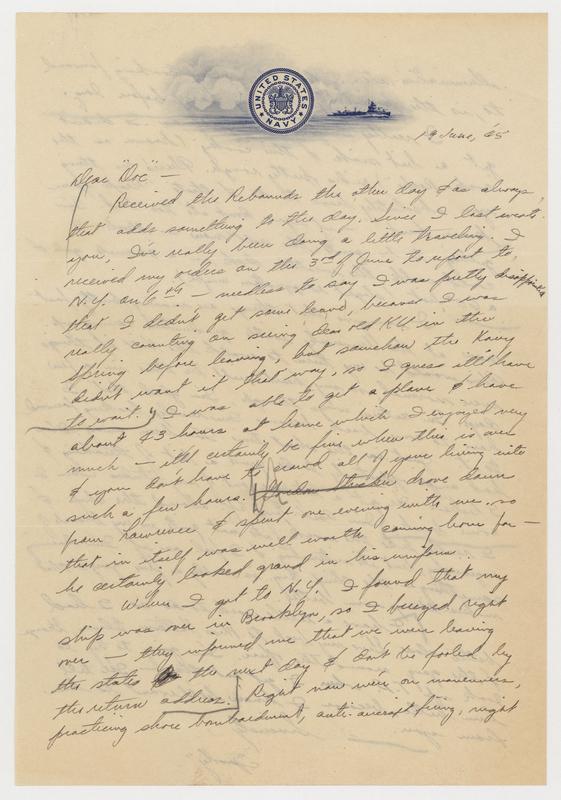 UNITED STATES NAVY
19 June, '45
Dear "Doc" —
Received the Rebounds the other day & as always,
that adds something to the day. Since I last wrote
you, I've really been doing a little traveling. I
received my orders on the 3rd of June to report to
N.Y. on 6th — needless to say I was pretty disappointed
that I didn't get some leave, because I was
really counting on seeing dear old KU in the
Spring before leaving, but somehow the Navy
didn't want it that way, so I guess it'll have
to wait. I was able to get a plane & have
about 43 hours at home which I enjoyed very
much — it'll certainly be fine when this is over
& you don't have to crowd all of your living into
such a few hours. drove down
from Lawrence & spent one evening with me, so
that in itself was well worth coming home for —
he certainly looked grand in his uniform.
When I got to N.Y. I found that my
ship was over in Brooklyn, so I breezed right
over — they informed me that we were leaving
the states the next day & don't be fooled by
the return address. Right now we're on maneuvers,
practicing shore bombardment, anti-aircraft firing, night